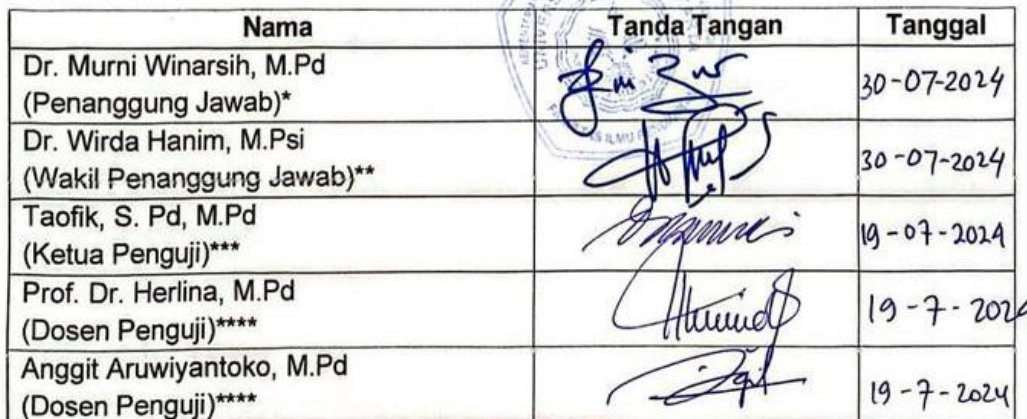 Nama Tanda Tangan Tanggal
Dr. Murni Winarsih, M.Pd
(Penanggung Jawab)* 30-07-2024
Dr. Wirda Hanim, M.Psi
(Wakil Penanggung Jawab)** 30-07-2024
Taofik, S. Pd, M.Pd
(Ketua Penguji)*** 19-07-2024
Prof. Dr. Herlina, M.Pd
(Dosen Penguji)**** 19-7-2024
Anggit Aruwiyantoko, M.Pd
(Dosen Penguji)**** 19-7-2024